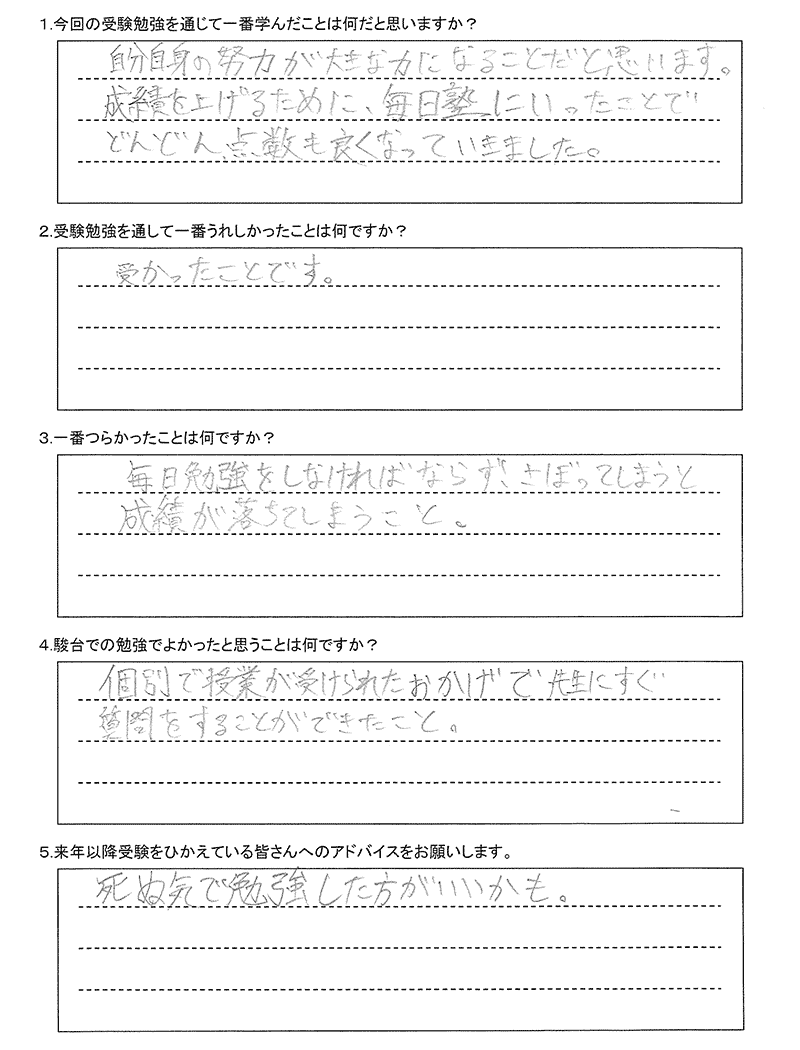 1.今回の受験勉強を通じて一番学んだことは何だと思いますか？
自分自身の努力が大きな力になることだと思います。
成績を上げるために、毎日塾にいったことで
どんどん、点数も良くなっていきました。
2.受験勉強を通して一番うれしかったことは何ですか？
受かったことです。
3.一番つらかったことは何ですか？
毎日勉強をしなければならず、さぼってしまうと
成績が落ちてしまうこと。
4.駿台での勉強でよかったと思うことは何ですか？
個別で授業が受けられたおかげで先生にすぐ
質問をすることができたこと。
5.来年以降受験をひかえている皆さんへのアドバイスをお願いします。
死ぬ気で勉強した方がいいかも。